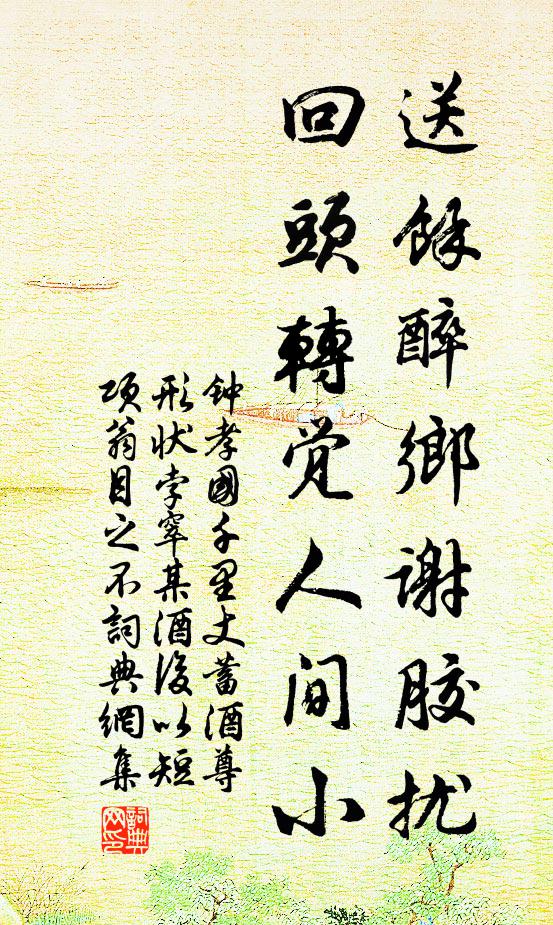 送餘醉鄉謝膠扰
回頭轉觉人间小
钟孝國千里丈蓄酒尊
形状孛窣某酒後以短
项翁目之不詞典網集
詞典
网印